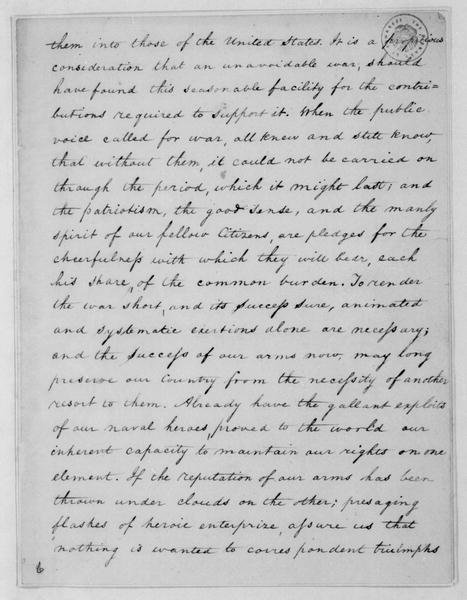 them into those of the United States. It is a propitious
consideration that an unavoidable war, should
have found this seasonable facility for the contri=
butions required to support it. When the public
voice called for war, all knew and still know,
that without them, it could not be carried on
through the period, which it might last; and
the patriotism, the good sense, and the manly
spirit of our fellow Citizens, are pledges for the
cheerfulness with which they will bear, each
his share, of the common burden. To render
the war short, and its success sure, animated
and systematic exertions alone are necessary;
and the success of our arms now, may long
preserve our Country from the necessity of another
resort to them. Already have the gallant exploits
of our naval heroes, proved to the world our
inherent capacity to maintain our rights on one
element. If the reputation of our arms has been
thrown under clouds on the other; presaging
flashes of heroic enterprize, assure us that
nothing is wanted to correspondent triumphs
6